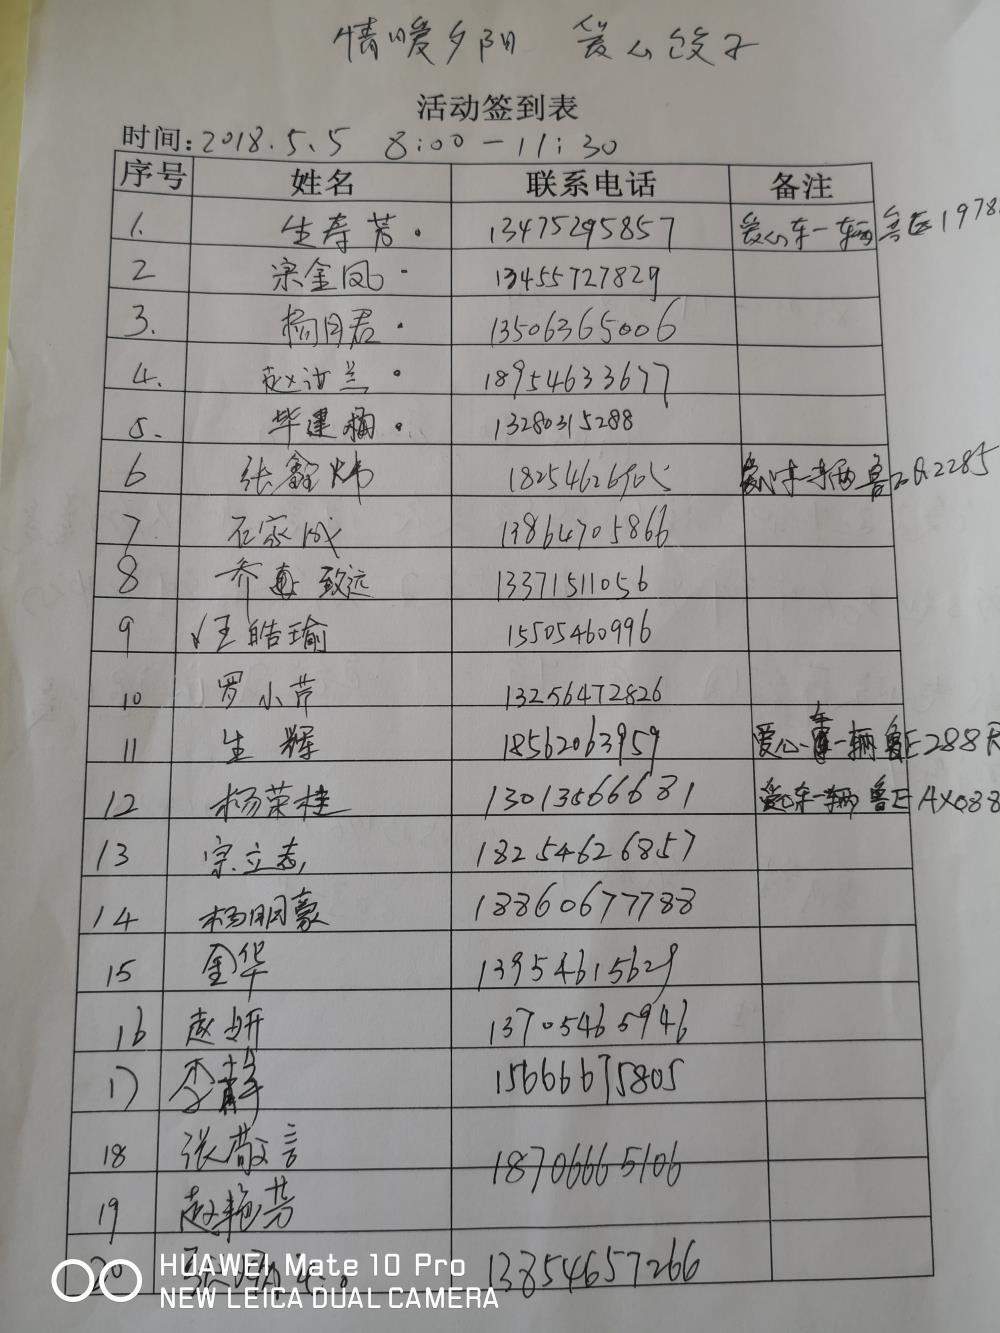 情暖夕阳 爱心饺子
活动签到表
时间: 2018.5.5 8:00-11:30
序号 姓名 联系电话 备注
1. 生寿芳 13475295857 爱心车一辆 鲁E1978
2 宗金凤 13455727829
3. 杨月君 13506365006
4. 赵汝兰 18954633677
5. 毕建楠 13280315288
6 张鑫炜 18254626905 爱心车一辆 鲁 2285
7 石家成 13864705866
8 乔 致远 13371511056
9 汪皓瑜 15505460996
10 罗小芹 13256472826
11 生辉 18562063959 爱心车一辆 鲁E288R
12 杨荣桂 13013566681 爱心车一辆 鲁EAX088
13 宗立志 18254626857
14 杨明豪 18860677788
15 金华 13954615629
16 赵妍 13705465946
17 李静 15666675805
18 张敬言 18706665106
19 赵艳芳
20 13854657266
HUAWEI Mate 10 Pro
NEW LEICA DUAL CAMERA